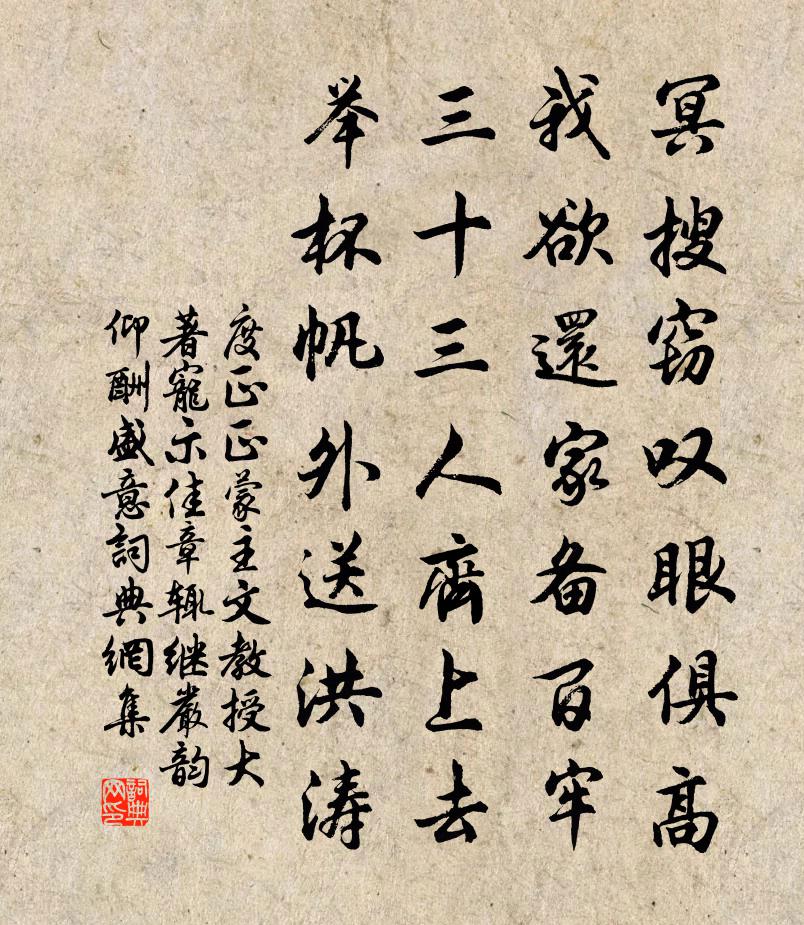 冥搜窃叹眼俱高
我欲還家备百牢
三十三人齊上去
举杯帆外送洪涛
度正正蒙主文教授大
著寵示佳章辄继嚴韵
仰酬盛意詞典網集
詞典
网印